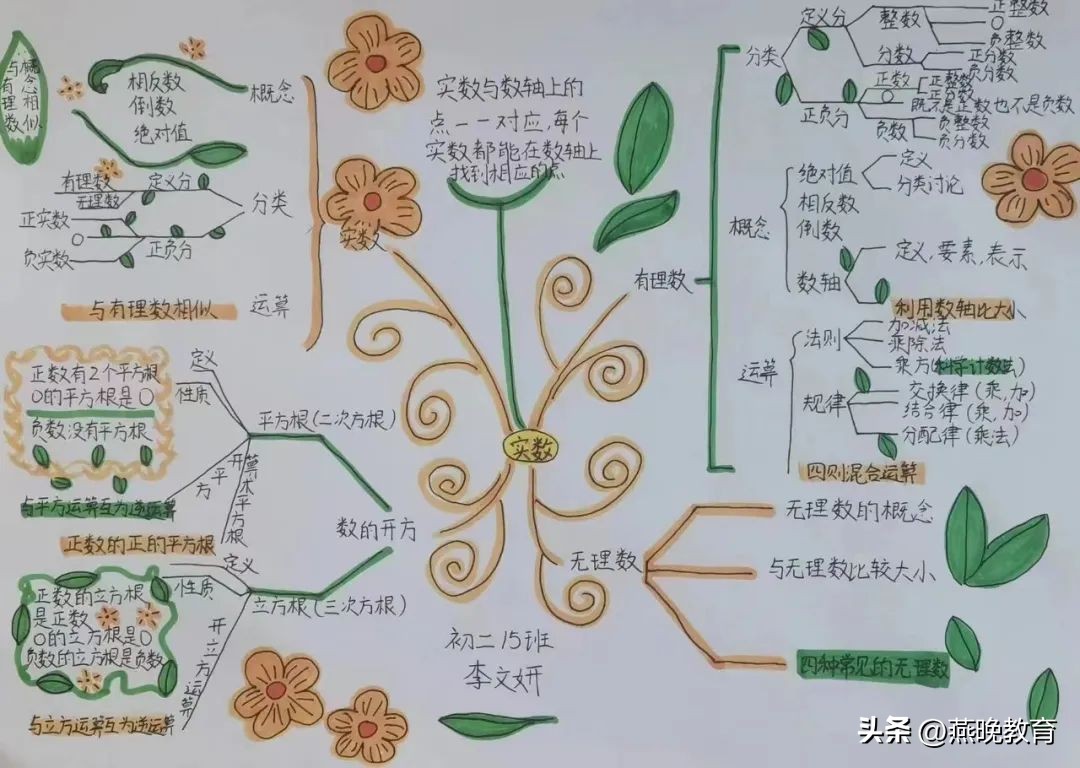 与有理数
概念相似
相反数
倒数
绝对值
概念
有理数
无理数
定义分
正实数
○
负实数
正负分
分类
与有理数相似
运算
实数
实数与数轴上的
点一一对应,每个
实数都能在数轴上
找到相应的点
实数
有理数
分类
定义分
整数
正整数
○
负整数
分数
正分数
负分数
正负分
正数
正整数
正分数
○
既不是正数也不是负数
负数
负整数
负分数
概念
绝对值
定义
分类讨论
相反数
倒数
数轴
定义,要素,表示
利用数轴比大小
运算
法则
加减法
乘除法
乘方(科学计数法)
规律
交换律(乘,加)
结合律(乘,加)
分配律(乘法)
四则混合运算
无理数
无理数的概念
与无理数比较大小
四种常见的无理数
数的开方
平方根(二次方根)
定义
性质
正数有2个平方根
○的平方根是○
负数没有平方根
开平方
与平方运算互为逆运算
算术平方根
正数的正的平方根
立方根(三次方根)
定义
性质
正数的立方根
是正数
○的立方根是○
负数的立方根是负数
开立方运算
与立方运算互为逆运算
初二15班
李文妍
头条 @燕晚教育